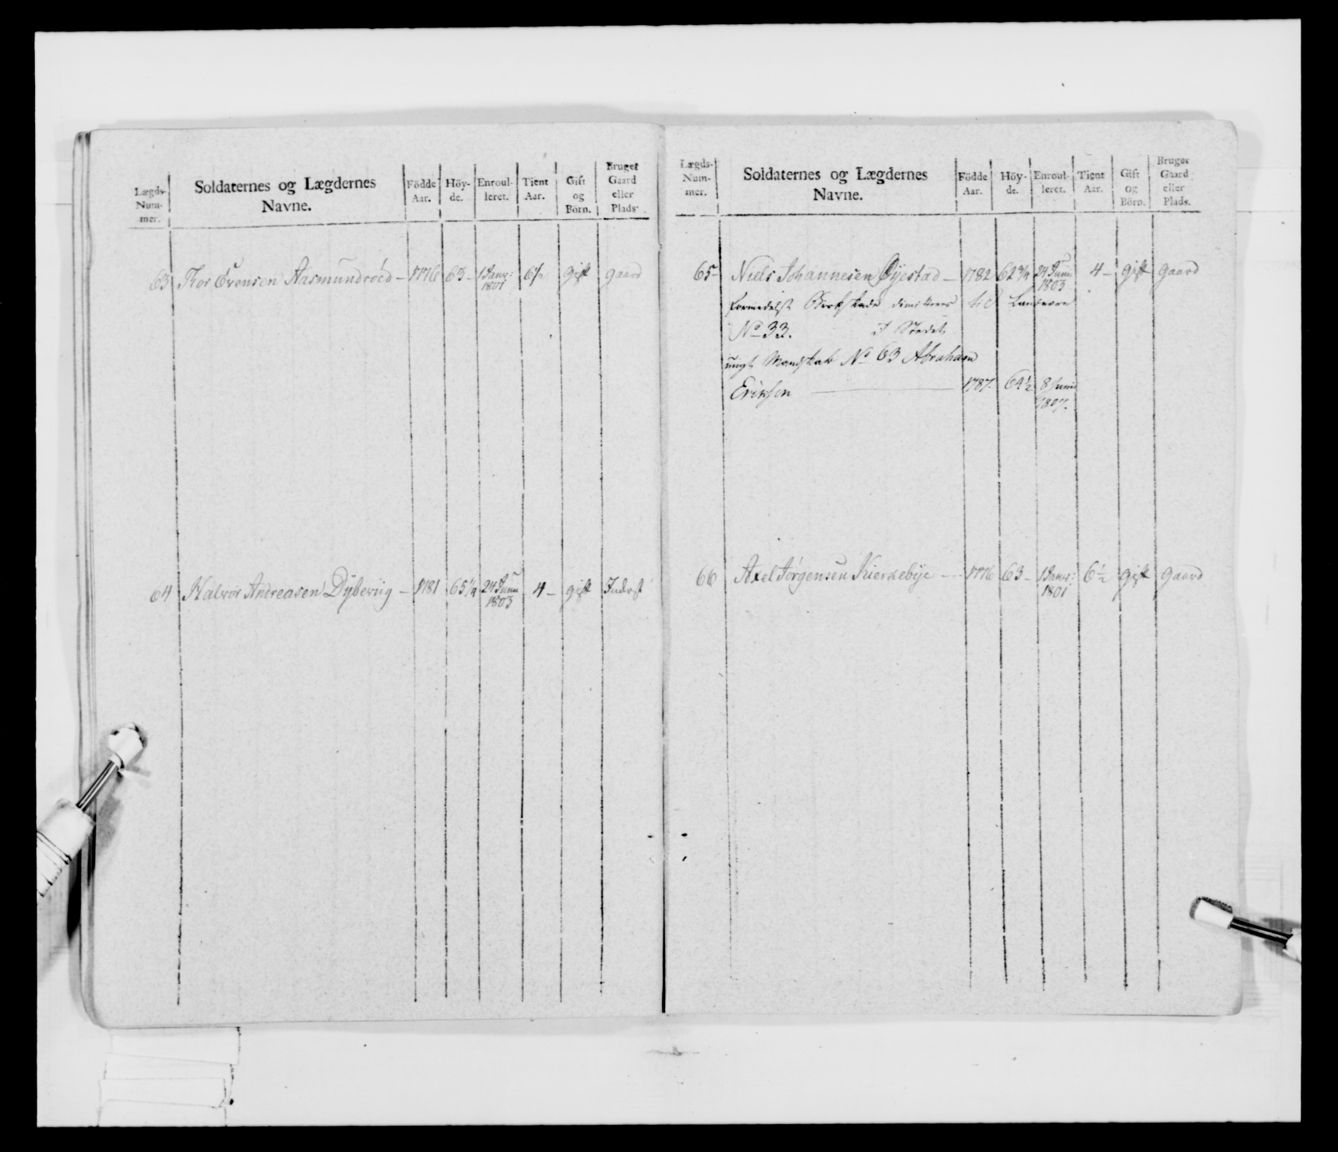 Lægds-Num-mer. Soldaternes og Lægdernes Navne. Födde Aar. Höy-de. Enroul-leret. Tient Aar. Gift og Börn. Bruger Gaard eller Plads.
63 Tor Evensen Aasmundröed – 1776 63 – 1 Janv: 1801 6½ gift gaard
64 Halvor Andreasen Dybeviig – 1781 65¼ 24 Juni 1803 4 – gift Inderst
Lægds-Num-mer. Soldaternes og Lægdernes Navne. Födde Aar. Höy-de. Enroul-leret. Tient Aar. Gift og Börn. Bruger Gaard eller Plads.
65 – Niels Johannesen Öyestad – 1782 62¾ 24 Juni 1803 4 – gift gaard
formedelst til Landværn
No 33. I Stedet
ungt Mandskab No 63 Abraham
Eriksen 1787. 64½ 8 Juni 1807.
66 Axel Jörgensen Kierkebye – 1776 63 – 1 Janv: 1801 6½ gift gaard